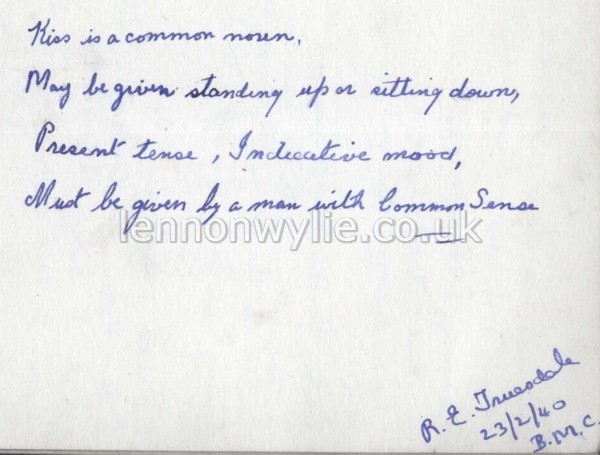 Kiss is a common noun,
May be given standing up or sitting down,
Present tense, Indicative mood,
Must be given by a man with Common Sense
lennonwylie.co.uk
R. E. Truesdale
23/2/40
B.M.C.